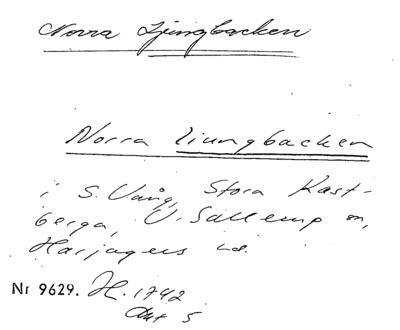 Norra Ljungbacken
Norra Ljungbacken
i S. Vång, Stora Kast-
berga, V. Sallerup sn,
Harjagers hd.
Nr 9629. H. 1742
Akt 5